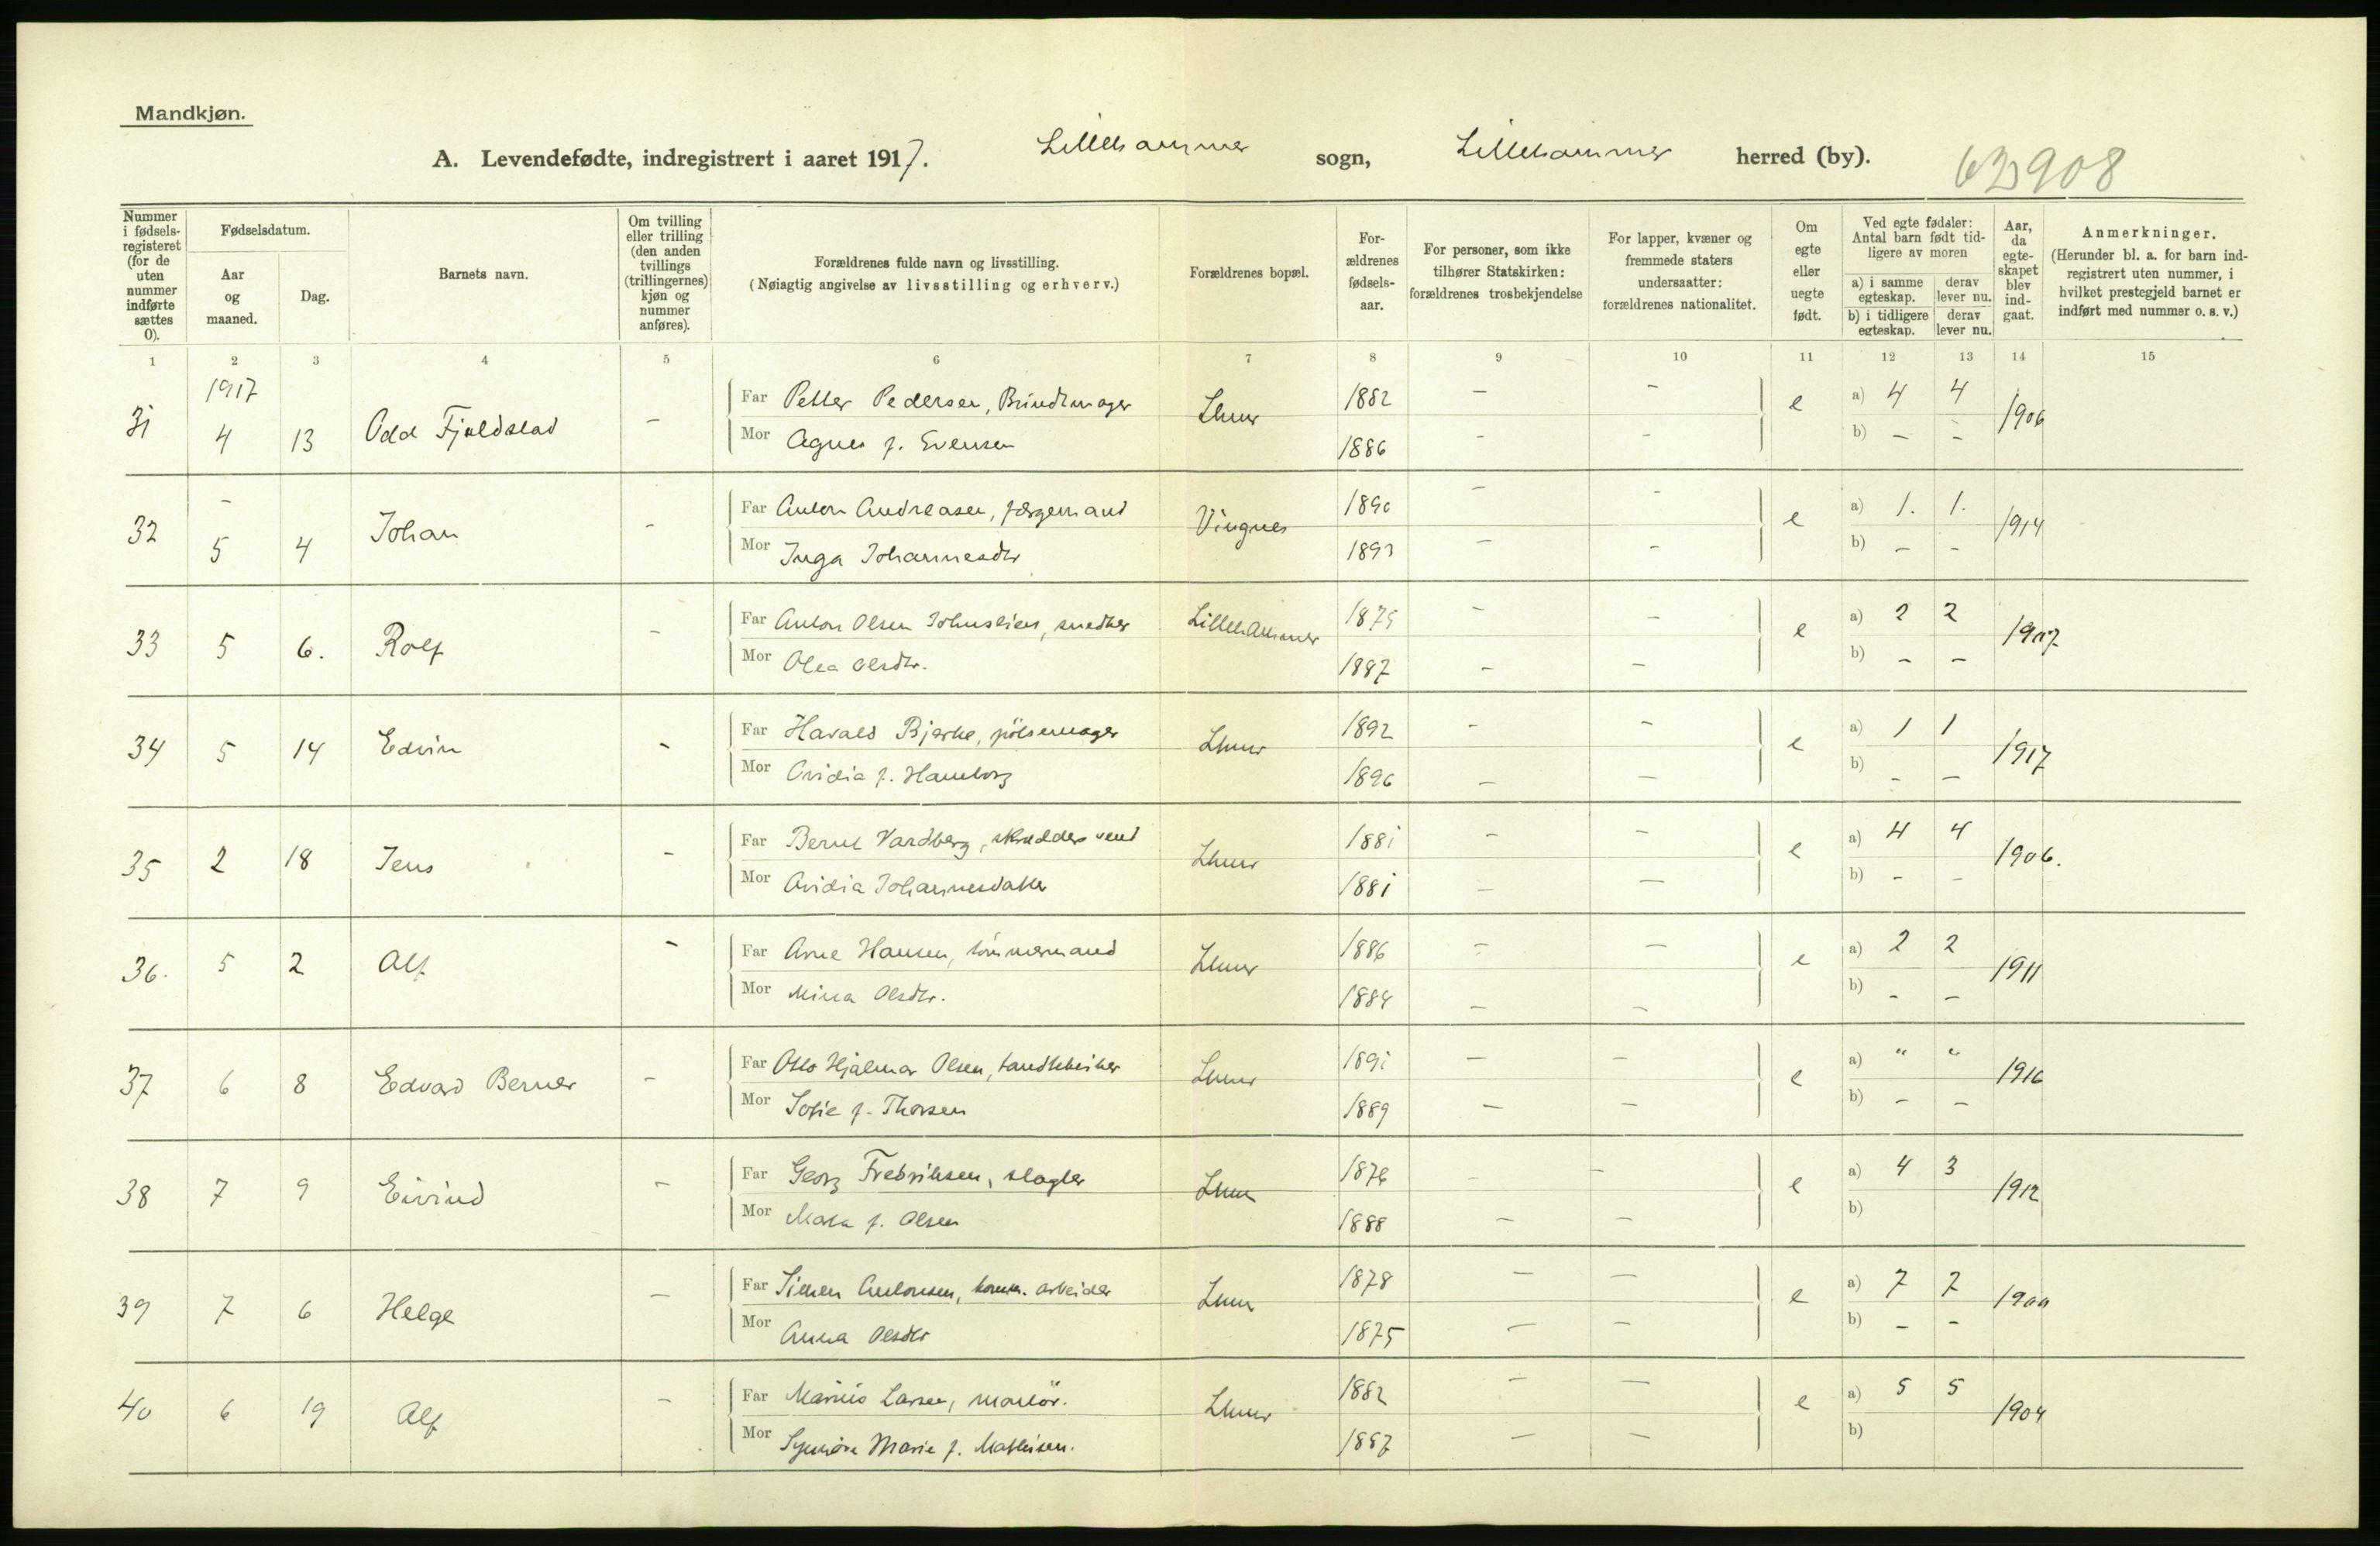 Mandkjøn.
A. Levendefødte, indregistrert i aaret 1917. Lillehammer sogn, Lillehammer herred (by).
Nummer i fødsels-registeret (for de uten nummer indførte sættes 0).
Fødselsdatum.
Aar og maaned.
Dag.
Barnets navn.
Om tvilling eller trilling (den anden tvillings (trillingernes) kjøn og nummer anføres).
Forældrenes fulde navn og livsstilling.
(Nøiagtig angivelse av livsstilling og erhverv.)
Forældrenes bopæl.
For-ældrenes fødsels-aar.
For personer, som ikke tilhører Statskirken: forældrenes trosbekjendelse
For lapper, kvæner og fremmede staters undersaatter: forældrenes nationalitet.
Om egte eller uegte født.
Ved egte fødsler: Antal barn født tid-ligere av moren
a) i samme egteskap. derav lever nu.
b) i tidligere egteskap. derav lever nu.
Aar, da egte-skapet blev ind-gaat.
Anmerkninger.
(Herunder bl. a. for barn ind-registrert uten nummer, i hvilket prestegjeld barnet er indført med nummer o. s. v.)
1 2 3 4 5 6 7 8 9 10 11 12 13 14 15
1917
Far Petter Pedersen, 1882 - - a) 4 4
31 4 13 Odd Fjeldstad - Lhmr e 1906
Mor Agnes f. Evensen 1886 - - b) - -
-
Far Anton Andreasen, færgemand 1890 - - a) 1. 1.
32 5 4 Johan - Vingnes e 1914
Mor Inga Johannesdtr 1893 - - b) - -
Far Anton Olsen Johnslien, snedker 1875 - - a) 2 2
33 5 6. Rolf - Lillehammer e 1907
Mor Olea Olsdtr. 1887 - - b) - -
Far Harald Bjerke, pölsemager 1892 - - a) 1 1
34 5 14 Edvin - Lhmr e 1917
Mor Ovidia f. Hamborg 1896 - - b) - -
Far Bernt Vardberg, skrædder svend 1881 - - a) 4 4
35 2 18 Jens - Lhmr e 1906.
Mor Ovidia Johannesdatter 1881 - - b) - -
Far Arne Hansen, tömmermand 1886 - - a) 2 2
36. 5 2 Alf - Lhmr e 1911
Mor Mina Olsdtr. 1884 - - b) - -
Far Otto Hjalmar Olsen, 1891 - - a) " "
37 6 8 Edvard Berner - Lhmr e 1916
Mor Sofie f. Thorsen 1889 - - b) - -
Far Georg Fredriksen, slagter 1876 - - a) 4 3
38 7 9 Eivind - Lhmr e 1912
Mor f. Olsen 1888 - - b)
Far Simen Antonsen, komm. arbeider 1878 - - a) 7 7
39 7 6 Helge - Lhmr e 1900
Mor Anna Olsdtr 1875 - - b) - -
Far Marius Larsen, montör. 1882 - - a) 5 5
40 6 19 Alf - Lhmr e 1904
Mor Synnöve Marie f. Mathisen. 1887 - - b)